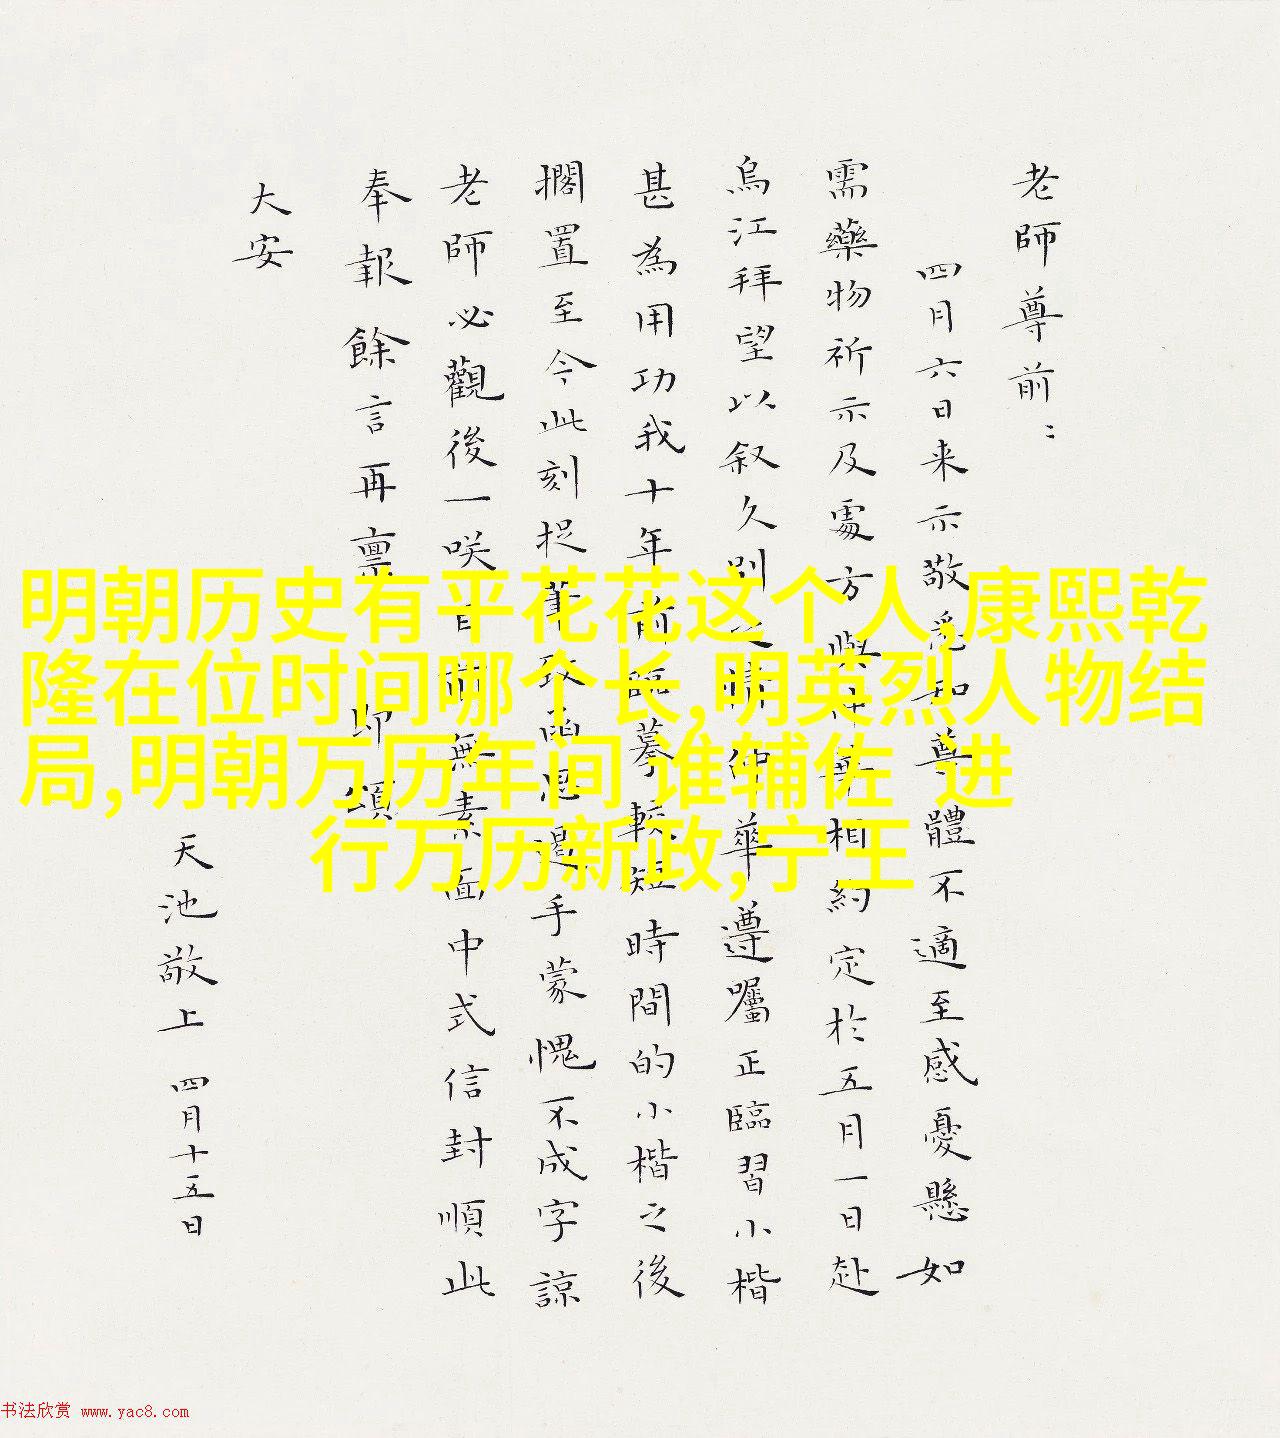 老師尊前：
四月六日来示敬尊體不適至感憂懸如
需藥物祈示及處方與仲華相約定於五月一日赴
烏江拜望以叙久別之情仲華遵囑正臨習小楷
甚為用功我十年前臨摹較短時間的小楷之後
擱置至今此刻捉筆致函思手蒙愧不成字諒
老師必觀後一咲目無素面中式信封順此
奉報餘言再禀即頌
大安
天池敬上 四月十五日
明朝历史有平花花这个人,康熙乾
隆在位时间哪个长,明英烈人物结
局,明朝万历年间 谁辅佐 进
行万历新政,宁王
书法欣赏 www.yac8.com